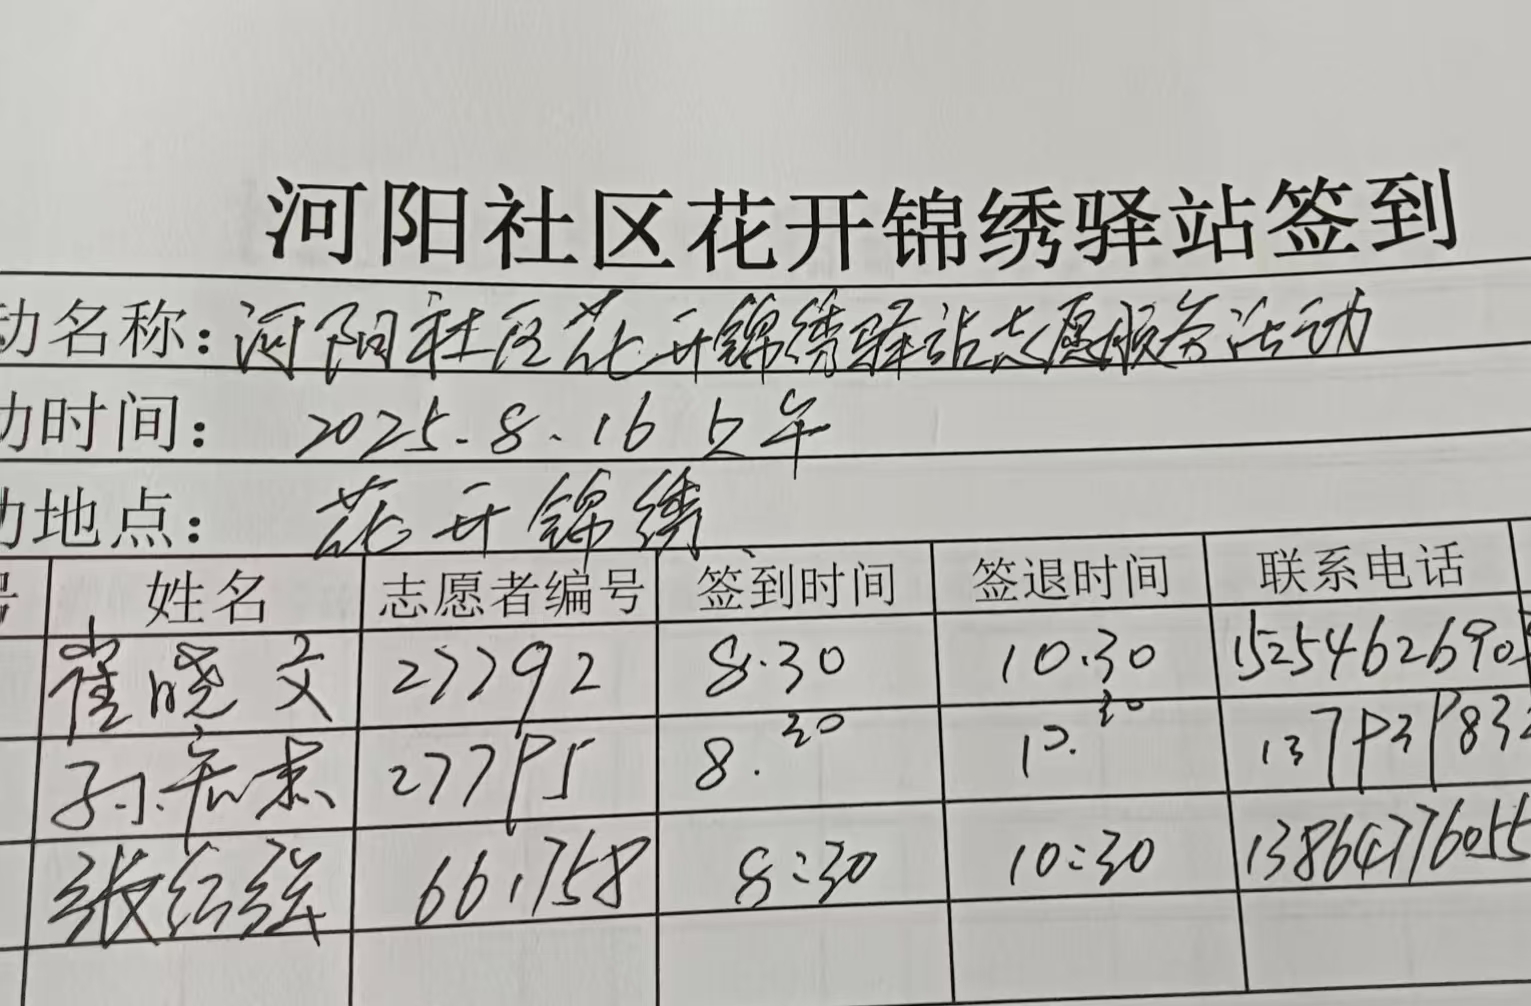 河阳社区花开锦绣驿站签到
动名称：河阳社区花开锦绣驿站志愿服务活动
动时间：2025.8.16 上午
动地点：花开锦绣
号 姓名 志愿者编号 签到时间 签退时间 联系电话
崔晓文 27792 8.30 10.30 1525462690
孙 27795 8.30 10.30 13793983
张红 661758 8:30 10:30 13864776055